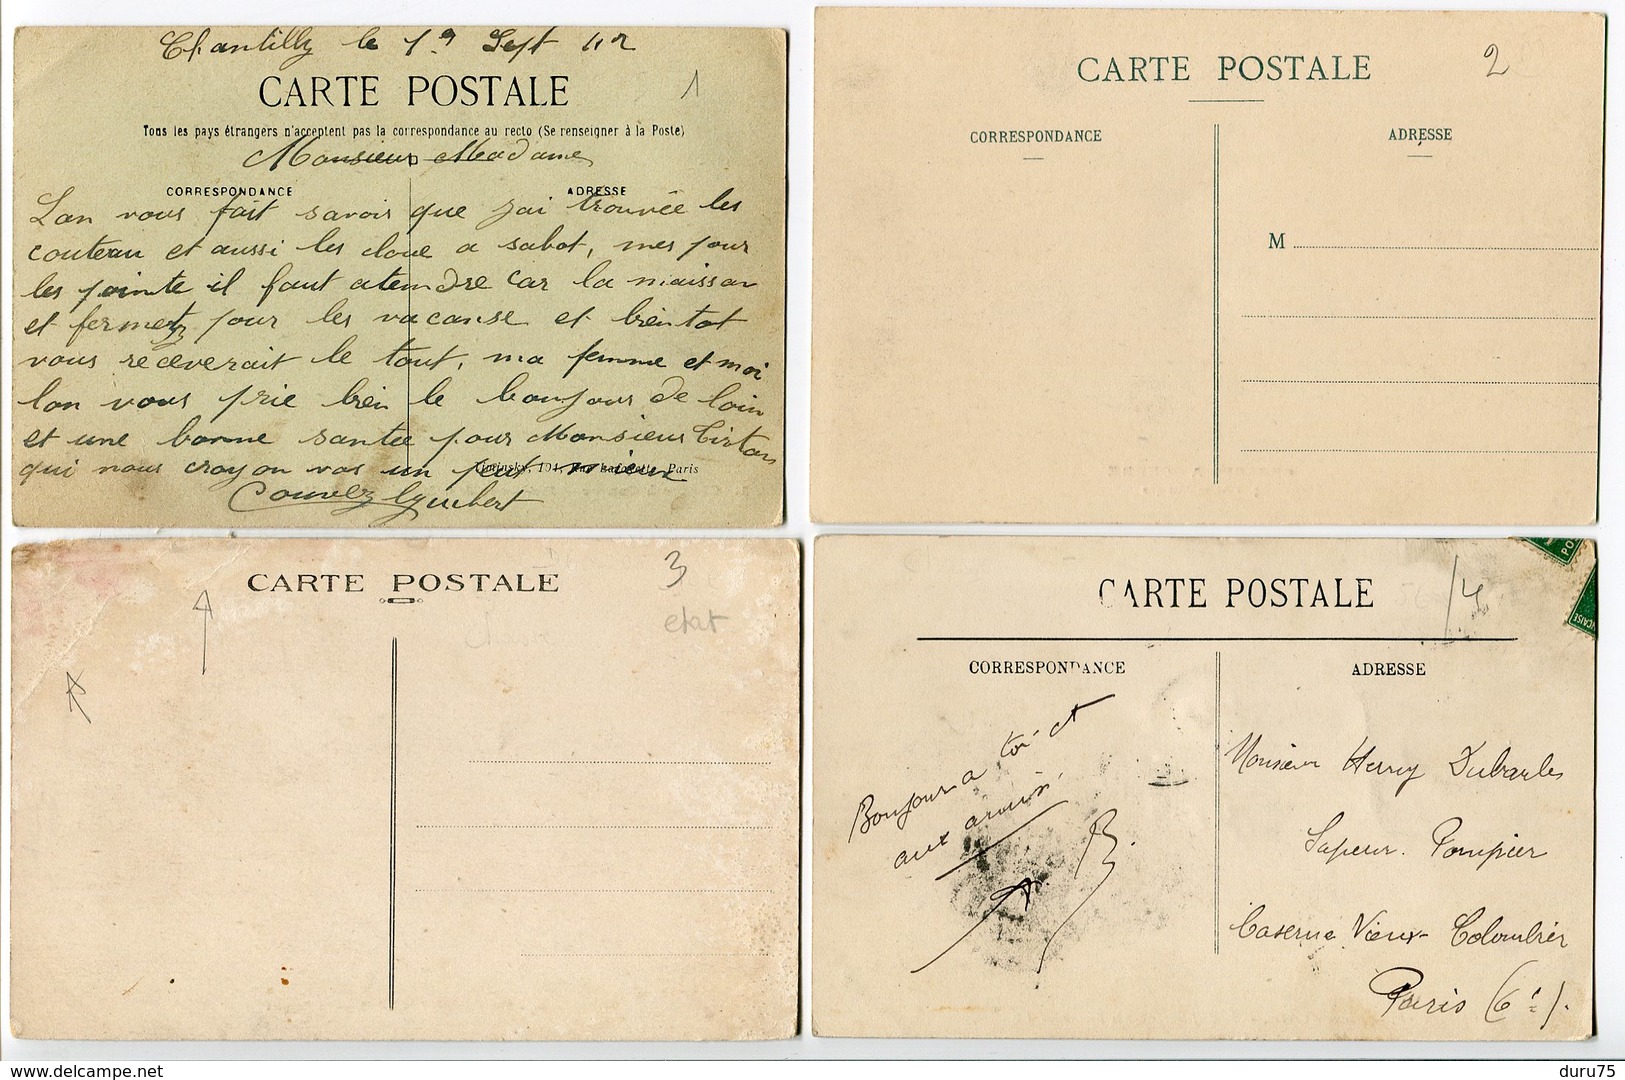 Chantilly le 19 Sept
CARTE POSTALE
1
Tous les pays étrangers n'acceptent pas la correspondance au recto (Se renseigner à la Poste)
Monsieur Madame
CORRESPONDANCE
ADRESSE
Lon vous fait savoir que jai trouvée les
couteau et aussi les cloue a sabot, mes pour
les pointe il faut atendre car la maisson
et fermetz pour les vacanse et bientot
vous receverait le tout, ma femme et moi
lon vous prie bien le bonjour de loin
et une bonne santee pour Monsieur
qui nous croyon vas un peut mieux
104, Rue Lafayette, Paris
CARTE POSTALE
2
CORRESPONDANCE
ADRESSE
M
CARTE POSTALE
3
etat
CARTE POSTALE
4
CORRESPONDANCE
ADRESSE
Bonjour a toi et
aux amis
Monsieur Henry
Sapeur. Pompier
Caserne Vieux-Colombier
Paris (6e).
www.delcampe.net
duru75